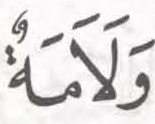 وَلَامَةٌ